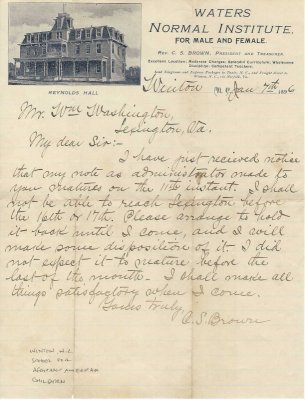 WATERS
NORMAL INSTITUTE,
FOR MALE AND FEMALE.
REV. C. S. BROWN, PRESIDENT AND TREASURER.
Excellent Location; Moderate Charges; Extended Curriculum; Wholesome
Discipline; Competent Teachers.
Send Telegrams and Express Packages to Tunis, N. C., and Freight Direct to
Winton, N. C., via Norfolk, Va.
REYNOLDS HALL
Winton N. C., Jan 7th 1896
Mr. Wm Washington,
Lexington, Va.
My dear Sir:-
I have just recieved notice
that my note as administrator made to
you matures on the 11th instant. I shall
not be able to reach Lexington before
the 16th or 17th. Please arrange to hold
it back until I come, and I will
make some disposition of it. I did
not expect it to mature before the
last of the month. I shall make all
things satisfactory when I come.
Yours truly
C. S. Brown
WINTON, N.C.
SCHOOL FOR
AFRICAN AMERICAN
CHILDREN